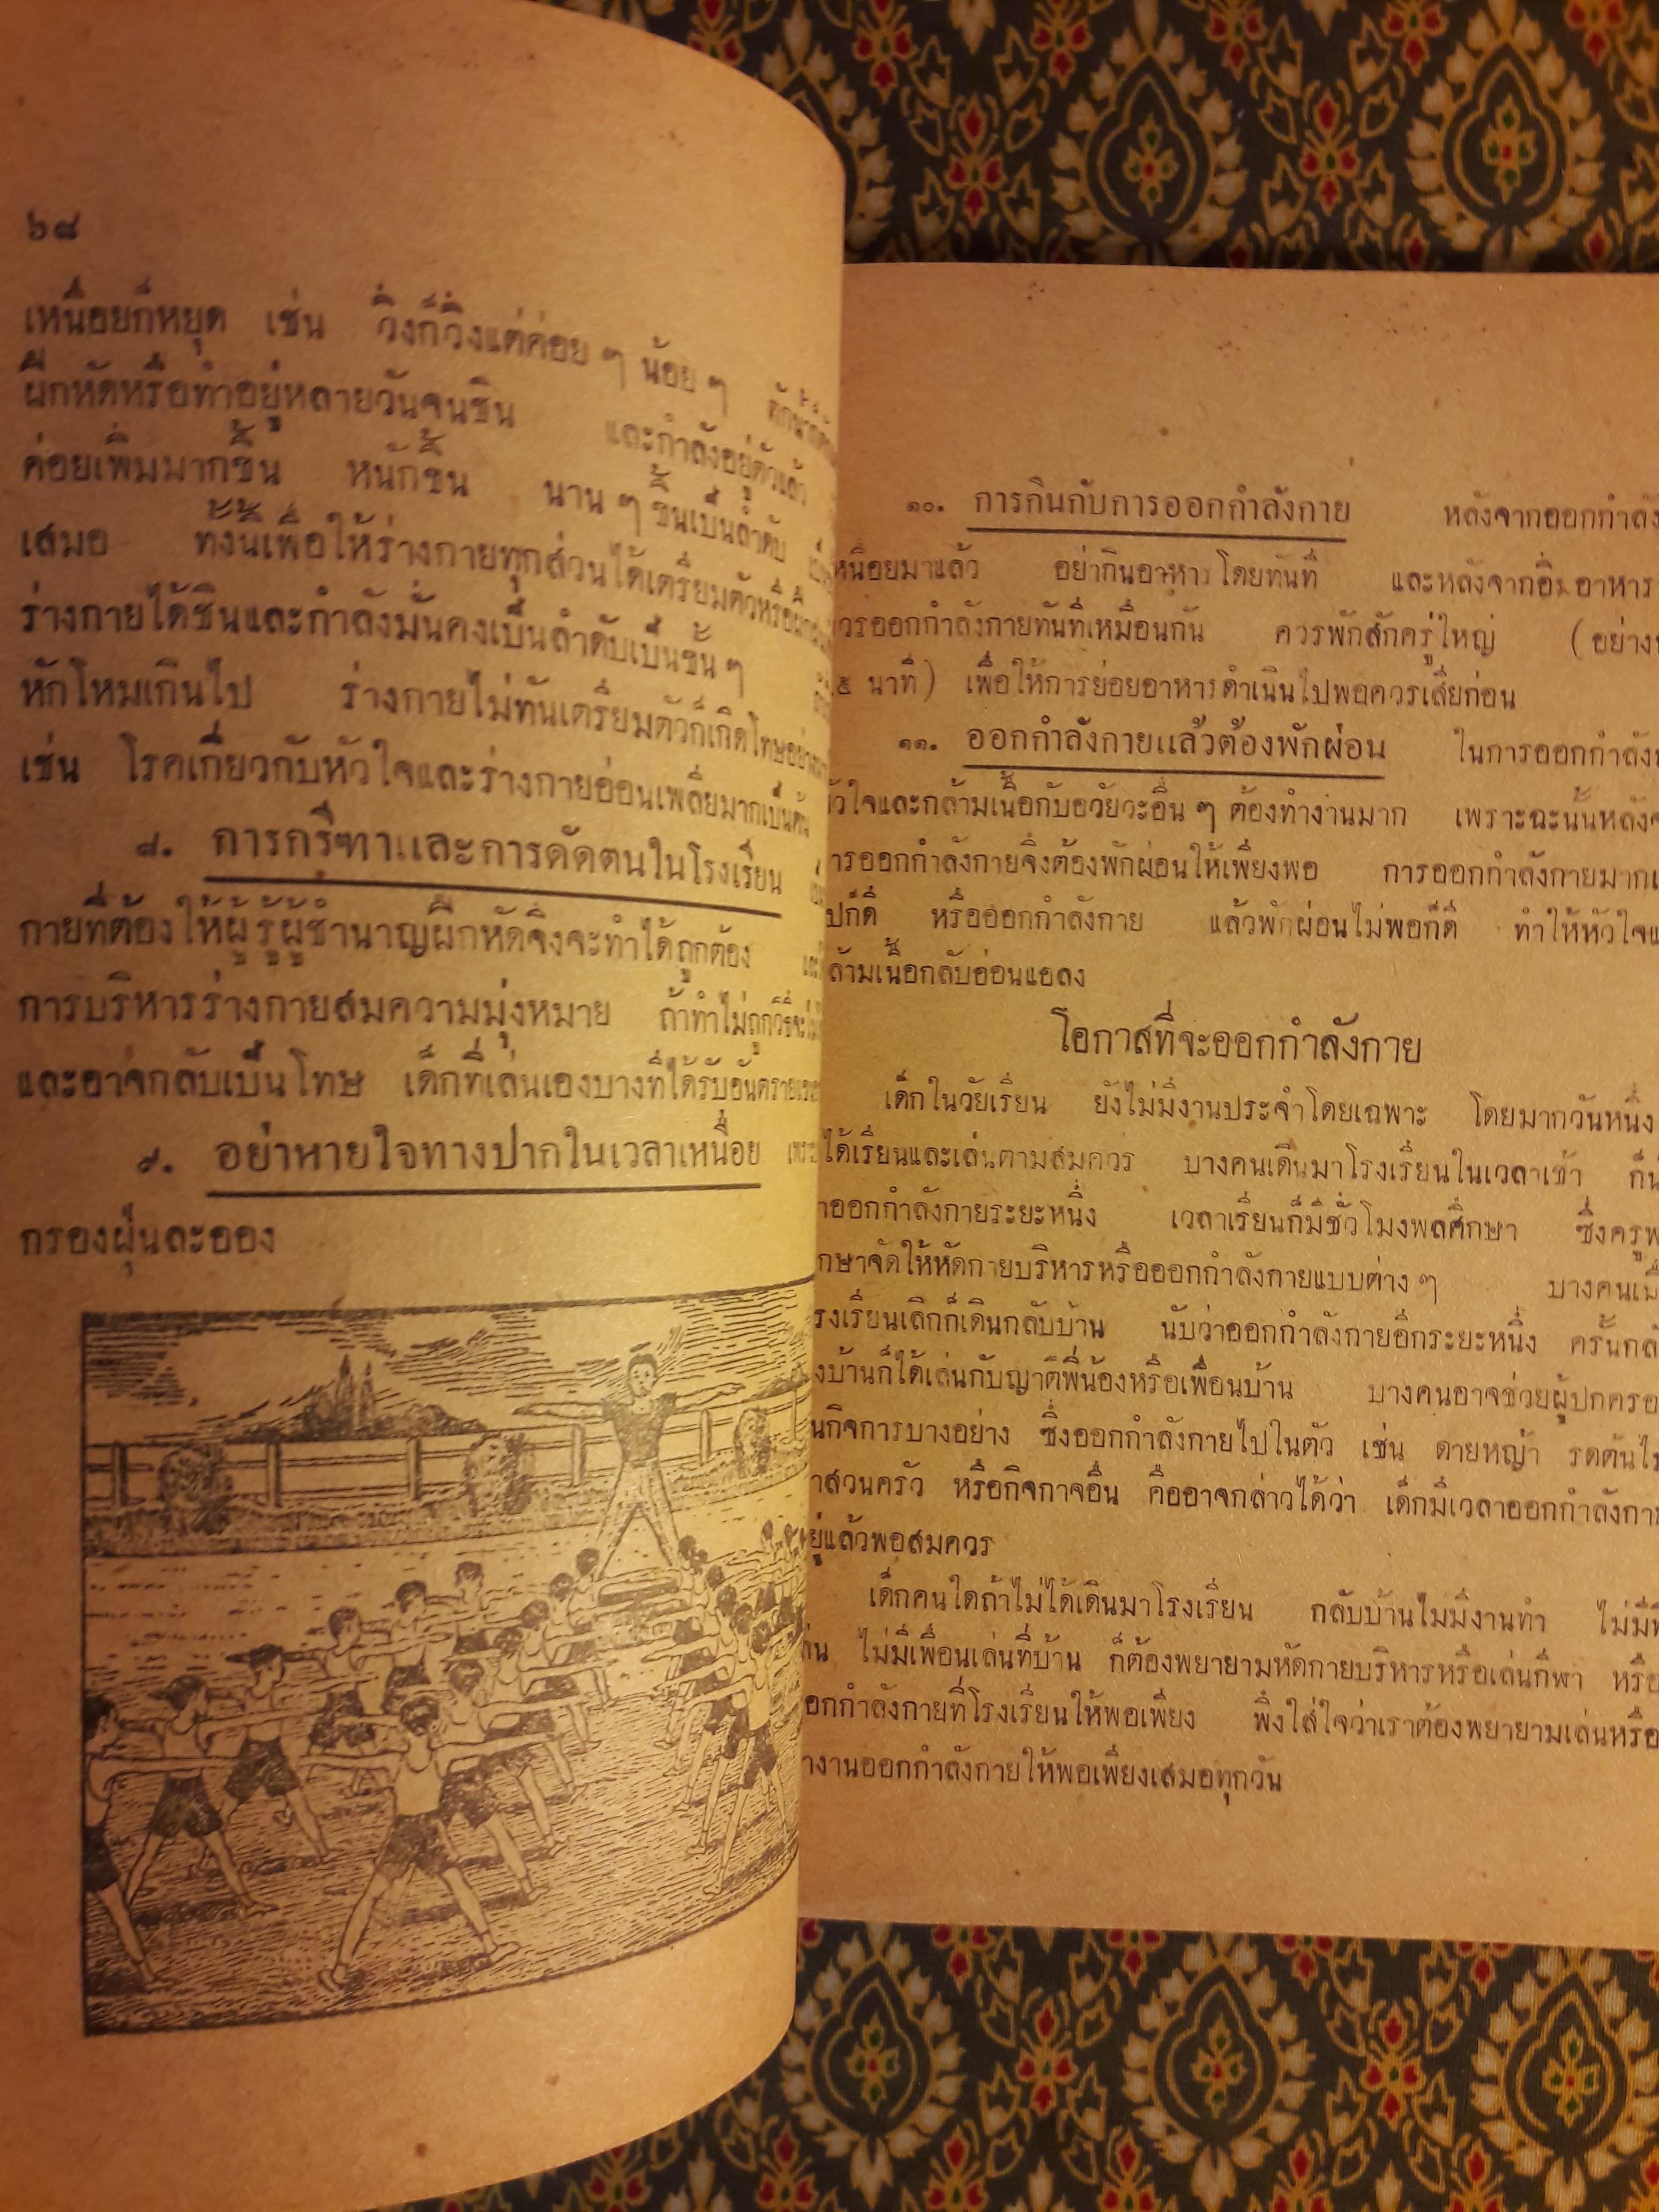 ๖๘
เหนื่อยก็หยุด เช่น วิ่งก็วิ่งแต่ค่อย ๆ น้อย ๆ
ฝึกหัดหรือทำอยู่หลายวันจนชิน และกำลังอยู่ตัวแล้ว
ค่อยเพิ่มมากขึ้น หนักขึ้น นาน ๆ ขึ้นเป็นลำดับ
เสมอ ทั้งนี้เพื่อให้ร่างกายทุกส่วนได้เตรียมตัวหรือ
ร่างกายได้ชินและกำลังมั่นคงเป็นลำดับเป็นชั้น ๆ
หักโหมเกินไป ร่างกายไม่ทันเตรียมตัวก็เกิดโทษ
เช่น โรคเกี่ยวกับหัวใจและร่างกายอ่อนเพลียมากเป็นต้น
๘. การกรีฑาและการดัดตนในโรงเรียน
กายที่ต้องให้ผู้รู้ผู้ชำนาญฝึกหัดจึงจะทำได้ถูกต้อง
การบริหารร่างกายสมความมุ่งหมาย ถ้าทำไม่ถูกวิธี
และอาจกลับเป็นโทษ เด็กที่เล่นเองบางทีได้รับอันตราย
๙. อย่าหายใจทางปากในเวลาเหนื่อย
กรองฝุ่นละออง
๑๐. การกินกับการออกกำลังกาย หลังจากออกกำลัง
หนื่อยมาแล้ว อย่ากินอาหารโดยทันที และหลังจากอิ่มอาหาร
วรออกกำลังกายทันทีเหมือนกัน ควรพักสักครู่ใหญ่ (อย่าง
๕ นาที) เพื่อให้การย่อยอาหารดำเนินไปพอควรเสียก่อน
๑๑. ออกกำลังกายแล้วต้องพักผ่อน ในการออกกำลัง
ัวใจและกล้ามเนื้อกับอวัยวะอื่น ๆ ต้องทำงานมาก เพราะฉะนั้นหลัง
ารออกกำลังกายจึงต้องพักผ่อนให้เพียงพอ การออกกำลังกายมาก
ปก็ดี หรือออกกำลังกาย แล้วพักผ่อนไม่พอก็ดี ทำให้หัวใจ
ล้ามเนื้อกลับอ่อนแอลง
โอกาสที่จะออกกำลังกาย
เด็กในวัยเรียน ยังไม่มีงานประจำโดยเฉพาะ โดยมากวันหนึ่ง
ได้เรียนและเล่นตามสมควร บางคนเดินมาโรงเรียนในเวลาเช้า ก็
าออกกำลังกายระยะหนึ่ง เวลาเรียนก็มีชั่วโมงพลศึกษา ซึ่งครู
กษาจัดให้หัดกายบริหารหรือออกกำลังกายแบบต่าง ๆ บางคน
รงเรียนเลิกก็เดินกลับบ้าน นับว่าออกกำลังกายอีกระยะหนึ่ง ครั้น
งบ้านก็ได้เล่นกับญาติพี่น้องหรือเพื่อนบ้าน บางคนอาจช่วยผู้ปกครอ
นกิจการบางอย่าง ซึ่งออกกำลังกายไปในตัว เช่น ดายหญ้า รดต้นไ
าสวนครัว หรือกิจกาจอื่น คืออาจกล่าวได้ว่า เด็กมีเวลาออกกำลังกา
ยู่แล้วพอสมควร
เด็กคนใดถ้าไม่ได้เดินมาโรงเรียน กลับบ้านไม่มีงานทำ ไม่มี
ล่น ไม่มีเพื่อนเล่นที่บ้าน ก็ต้องพยายามหัดกายบริหารหรือเล่นกีฬา หรือ
อกกำลังกายที่โรงเรียนให้พอเพียง พึงใส่ใจว่าเราต้องพยายามเล่นหรือ
างานออกกำลังกายให้พอเพียงเสมอทุกวัน